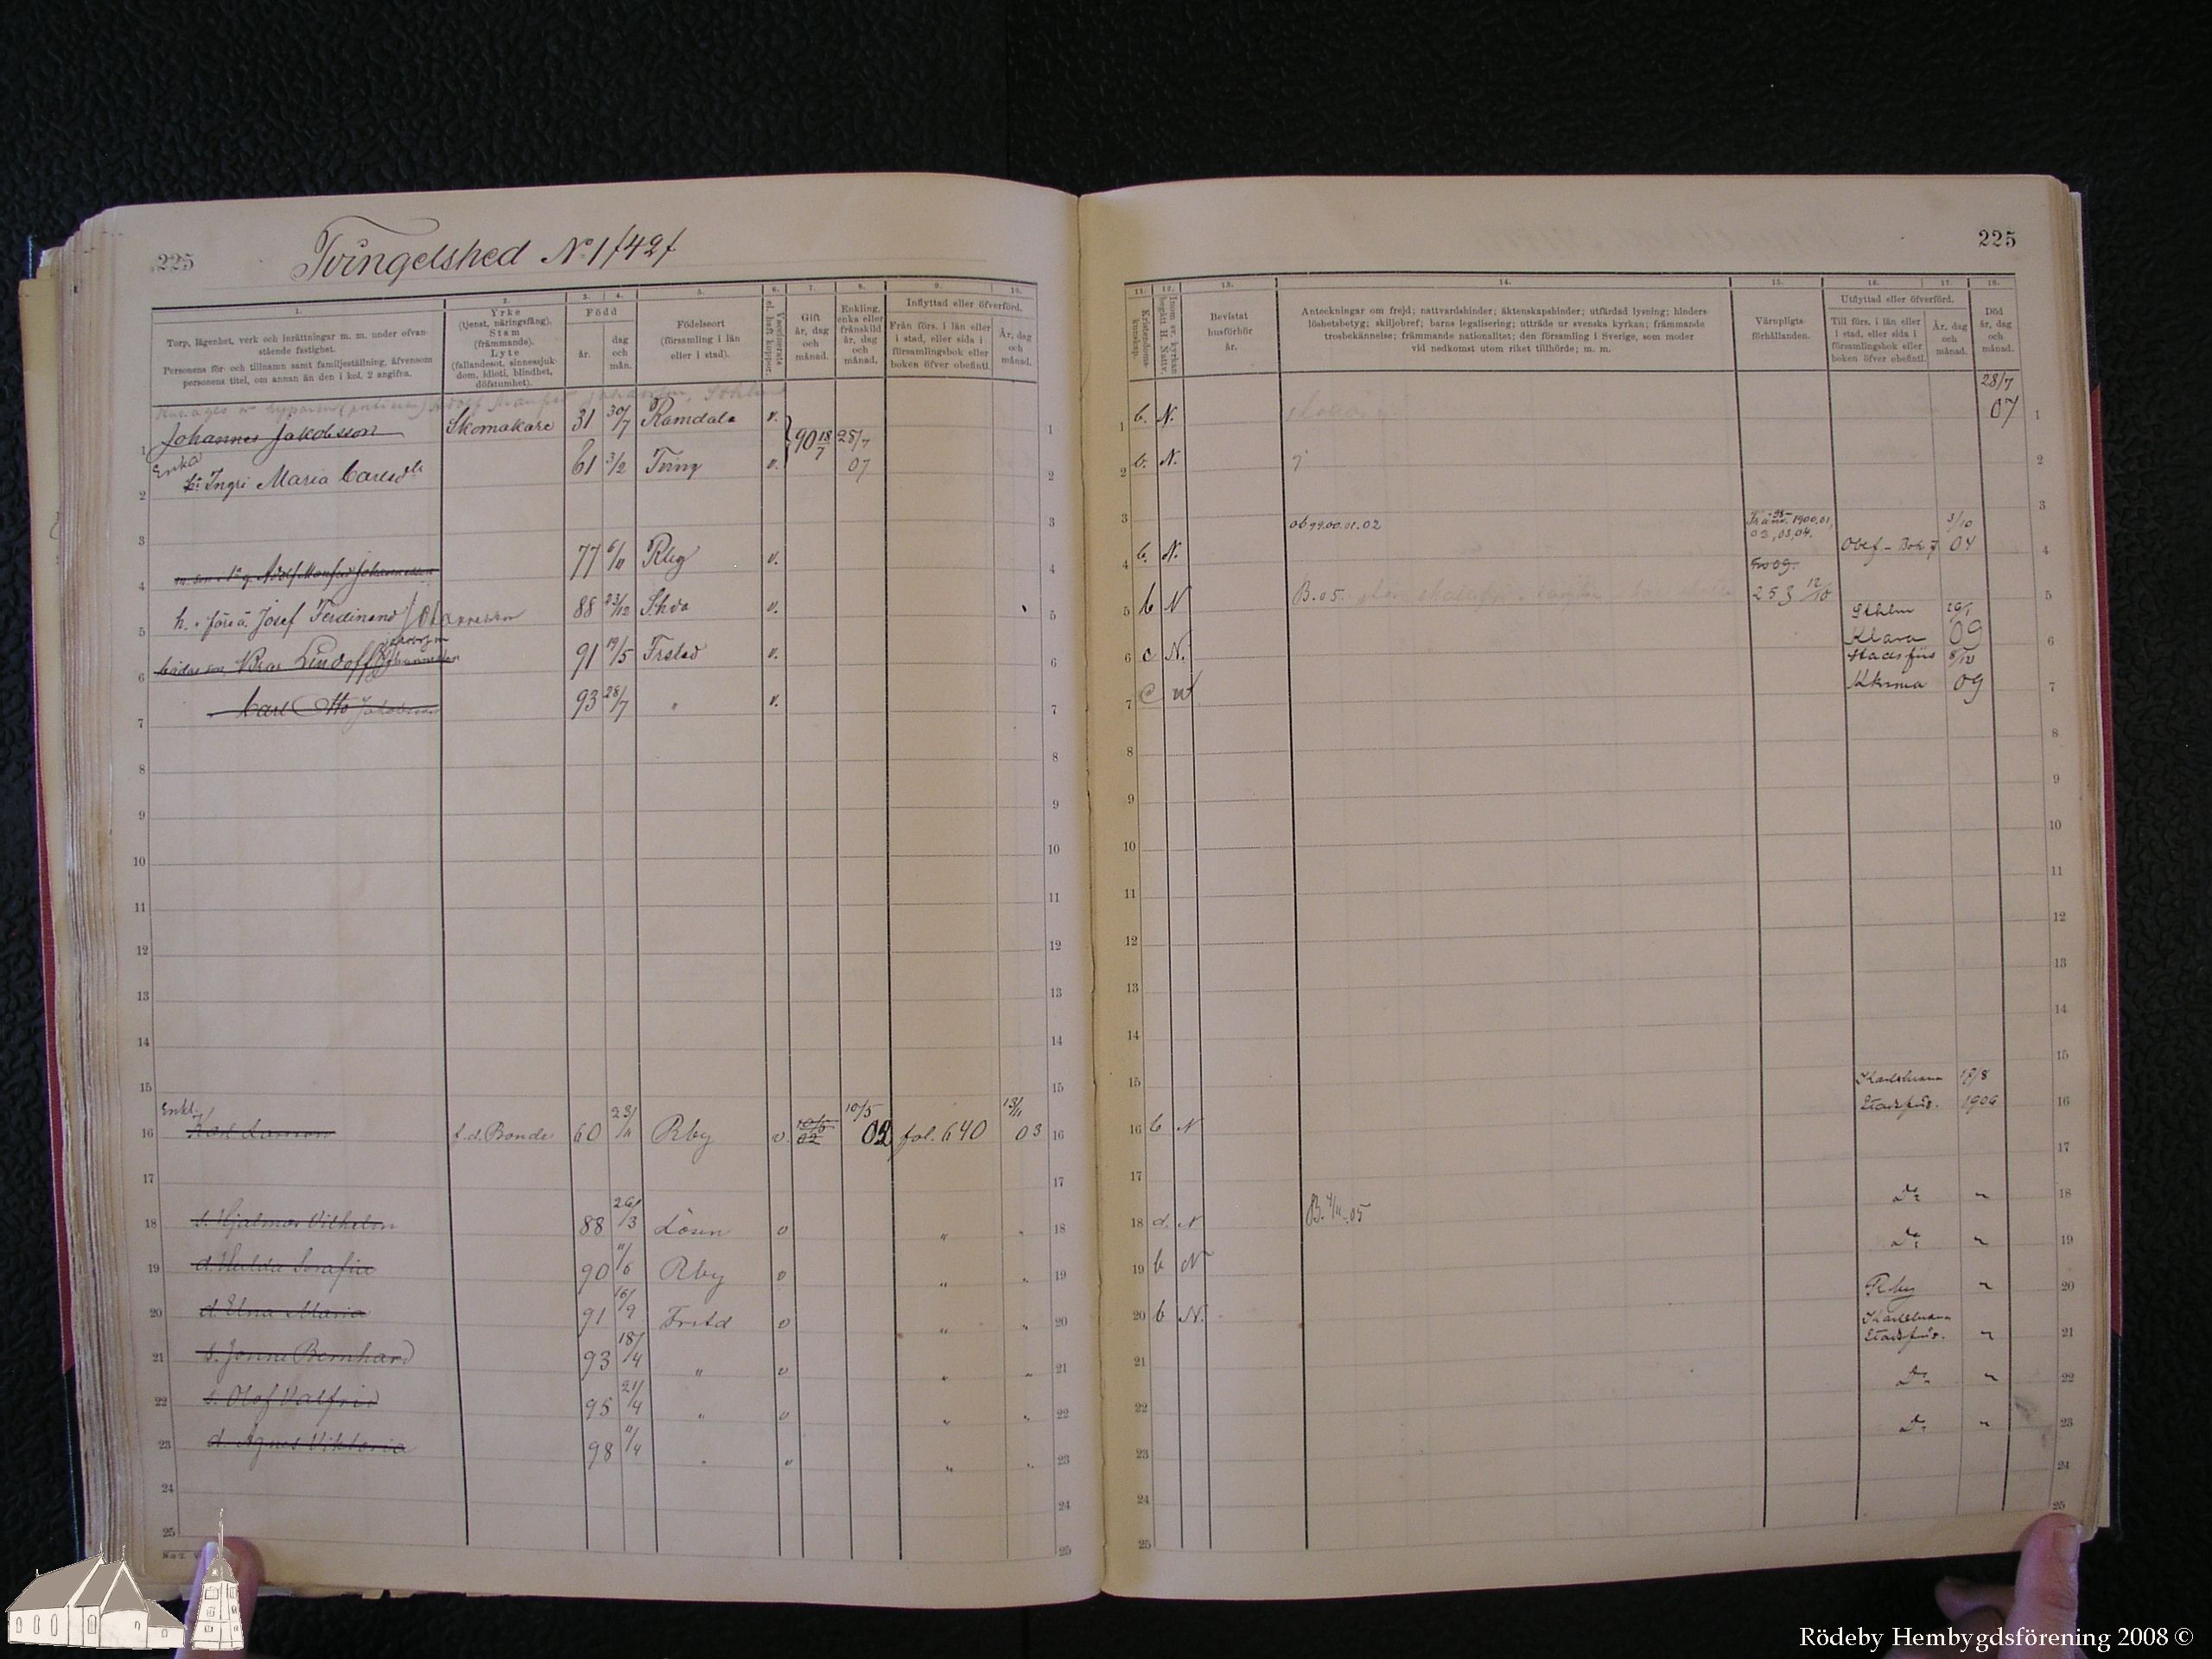 225
Tvingelshed No 1/42/
1.
Torp, lägenhet, verk och inrättningar m. m. under ofvan-
stående fastighet.
Personens för- och tillnamn samt familjeställning, äfvensom
personens titel, om annan än den i kol. 2 angifna.
2.
Yrke
(tjenst, näringsfång).
Stam
(främmande).
Lyte
(fallandesot, sinnessjuk-
dom, idioti, blindhet,
döfstumhet).
3. 4.
Född
år.
dag
och
mån.
5.
Födelseort
(församling i län
eller i stad).
6.
Vaccinerats
el. haft koppor.
7.
Gift
år, dag
och
månad.
8.
Enkling,
enka eller
frånskild
år, dag
och
månad.
9. 10.
Inflyttad eller öfverförd.
Från förs. i län eller
i stad, eller sida i
församlingsbok eller
boken öfver obefintl.
År, dag
och
månad.
1 Johannes Jakobsson Skomakare 31 30/7 Ramdala v. 90 18/7 28/7 07 1
Enka
2 h. Ingri Maria Carlsdr 61 3/2 Tving v. 2
3 3
4 Adolf Manfred Johannesson 77 6/11 Rby v. 4
5 h. s. före ä. Josef Ferdinand Johannesson 88 23/12 v. 5
6 bådas son 91 19/5 Frstad v. 6
7 Carl Otto Jakobsson 93 28/7 " v. 7
8 8
9 9
10 10
11 11
12 12
13 13
14 14
15 15
Enkl.
16 f.d. Bonde 60 23/11 Rby v. 10/5 02 10/5 02 fol. 640 13/11 03 16
17 17
18 s. Hjalmar Vilhelm 88 26/3 Lösen v " " 18
19 d. Hulda Serafia 90 11/6 Rby v " " 19
20 d. Elna Maria 91 16/9 Frstd v " " 20
21 s. Jonne Bernhard 93 18/4 " v " " 21
22 s. Olof Valfrid 95 21/4 " v " " 22
23 d. Agnes Viktoria 98 11/4 " v " " 23
24 24
25 25
225
11.
Kristendoms-
kunskap.
12.
Inom sv. kyrkan
begått H. Nattv.
13.
Bevistat
husförhör
år.
14.
Anteckningar om frejd; nattvardshinder; äktenskapshinder; utfärdad lysning; hinders-
löshetsbetyg; skiljobref; barns legalisering; utträde ur svenska kyrkan; främmande
trosbekännelse; främmande nationalitet; den församling i Sverige, som moder
vid nedkomst utom riket tillhörde; m. m.
15.
Värnpligts-
förhållanden.
16. 17.
Utflyttad eller öfverförd.
Till förs. i län eller
i stad, eller sida i
församlingsbok eller
boken öfver obefintl.
År, dag
och
månad.
18.
Död
år, dag
och
månad.
1 b. N. 28/7 07 1
2 b. N. 2
3 ob 99.00.01.02 3
4 b. N. 1900,01, 02, 03, 04. Obef. Bok 3/10 04 4
5 b N B. 05. 253 12/10 5
6 c N. Sthlm Klara 29/1 09 6
7 c N Stadsförs Kkrona 8/12 09 7
8 8
9 9
10 10
11 11
12 12
13 13
14 14
15 15
16 b N Karlskrona Stadsförs. 17/8 1906 16
17 17
18 d. N B. 4/11 05 Do " 18
19 b N Do " 19
20 b N. Rby " 20
21 Karlskrona Stadsförs. " 21
22 Do " 22
23 Do " 23
24 24
25 25
Rödeby Hembygdsförening 2008 ©